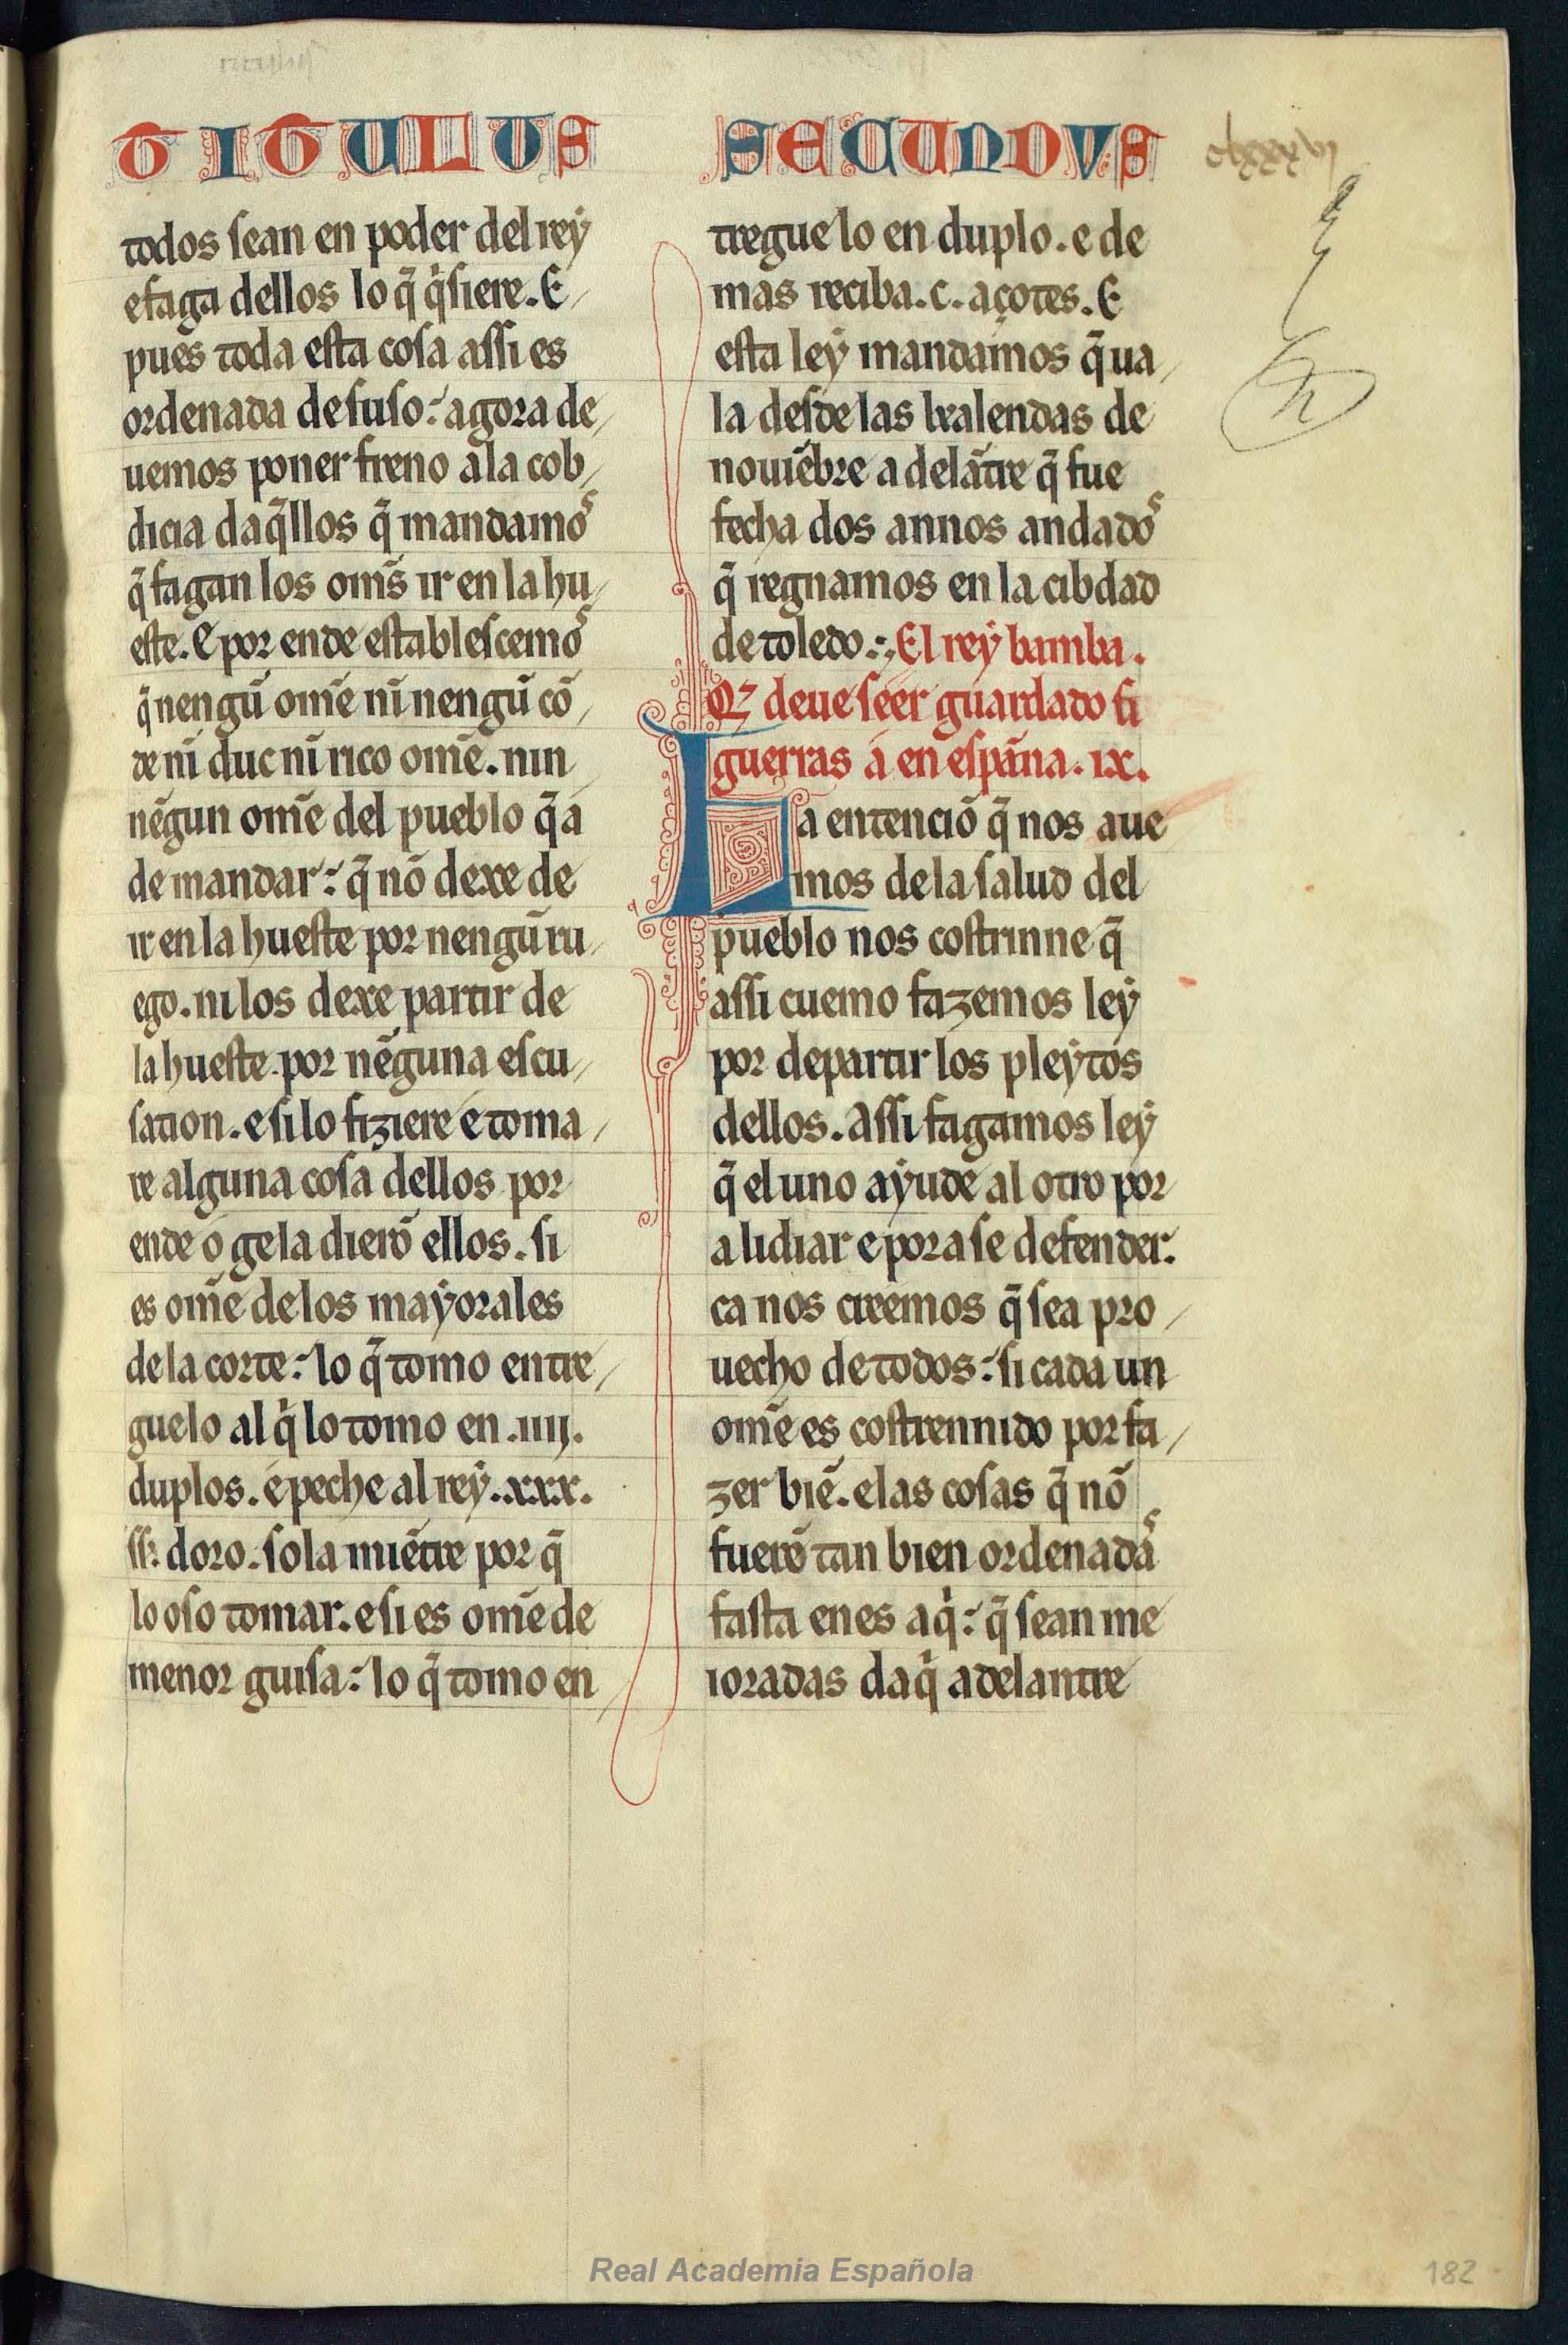 TITULUS SECUNDVS
clxxxvj
todos sean en poder del rey
e faga dellos lo q̃ q̉siere. E
pues toda esta cosa assi es
ordenada desuso: agora de
uemos poner freno a la cob
dicia daq̃llos q̃ mandamos
q̃ fagan los om̃s ir en la hu
este. E por ende establescemos
q̃ nengũ om̃e nĩ nengũ cõ
de nĩ duc nĩ rico om̃e. nin
nẽgun om̃e del pueblo q̃ a
de mandar: q̃ nõ dexe de
ir en la hueste por nengũ ru
ego. ni los dexe partir de
la hueste por nẽguna escu
sation. e si lo fiziere e toma
re alguna cosa dellos por
ende o ge la dierõ ellos. si
es om̃e de los mayorales
de la corte: lo q̃ tomo entre
guelo al q̉ lo tomo en .iiij.
duplos. e peche al rey .xxx.
ss̃. doro. sola miẽtre por q̃
lo oso tomar. e si es om̃e de
menor guisa: lo q̃ tomo en
tregue lo en duplo. e de
mas reciba .c. açotes. E
esta ley mandamos q̃ ua
la desde las kalendas de
nouiẽbre a delãtre q̃ fue
fecha dos annos andados
q̃ regnamos en la cibdad
de toledo.:, El rey bamba.
Q̃ deue seer guardado si
guerras a en espãna. ix.
La entenciõ q̃ nos aue
mos de la salud del
pueblo nos costrinne q̃
assi cuemo fazemos ley
por departir los pleytos
dellos. Assi fagamos ley
q̃ el uno ayude al otro por
a lidiar e pora se defender.
ca nos creemos q̃ sea pro
uecho de todos: si cada un
om̃e es costrennido por fa
zer biẽ. e las cosas q̃ nõ
fuerõ tan bien ordenadas
fasta enes aq̉: q̃ sean me
ioradas daq̉ adelantre
Real Academia Española
182